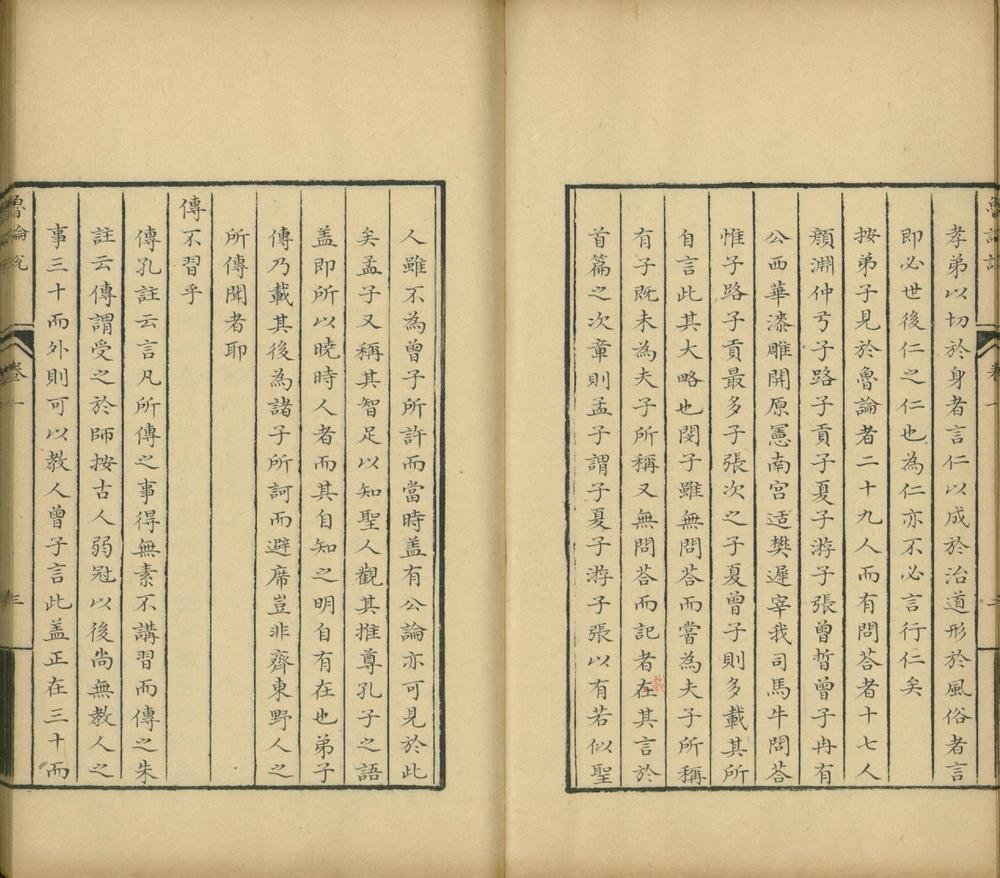 孝弟以切於身者言仁以成於治道形於風俗者言
即必世後仁之仁也為仁亦不必言行仁矣
按弟子見於魯論者二十九人而有問荅者十七人
顏淵仲弓子路子貢子夏子游子張曾晳曾子冉有
公西華漆雕開原憲南宮适樊遲宰我司馬牛問荅
惟子路子貢最多子張次之子夏曾子則多載其所
自言此其大略也閔子雖無問荅而嘗為夫子所稱
有子既未為夫子所稱又無問荅而記者在其言於
載
首篇之次章則孟子謂子夏子游子張以有若似聖
人雖不為曾子所許而當時盖有公論亦可見於此
矣孟子又稱其智足以知聖人觀其推尊孔子之語
盖即所以曉時人者而其自知之明自有在也弟子
傳乃載其後為諸子所訶而避席豈非齊東野人之
所傳聞者耶
傳不習乎
傳孔註云言凡所傳之事得無素不講習而傳之朱
註云傳謂受之於師按古人弱冠以後尚無教人之
事三十而外則可以教人曾子言此盖正在三十而
魯論說
卷一
三